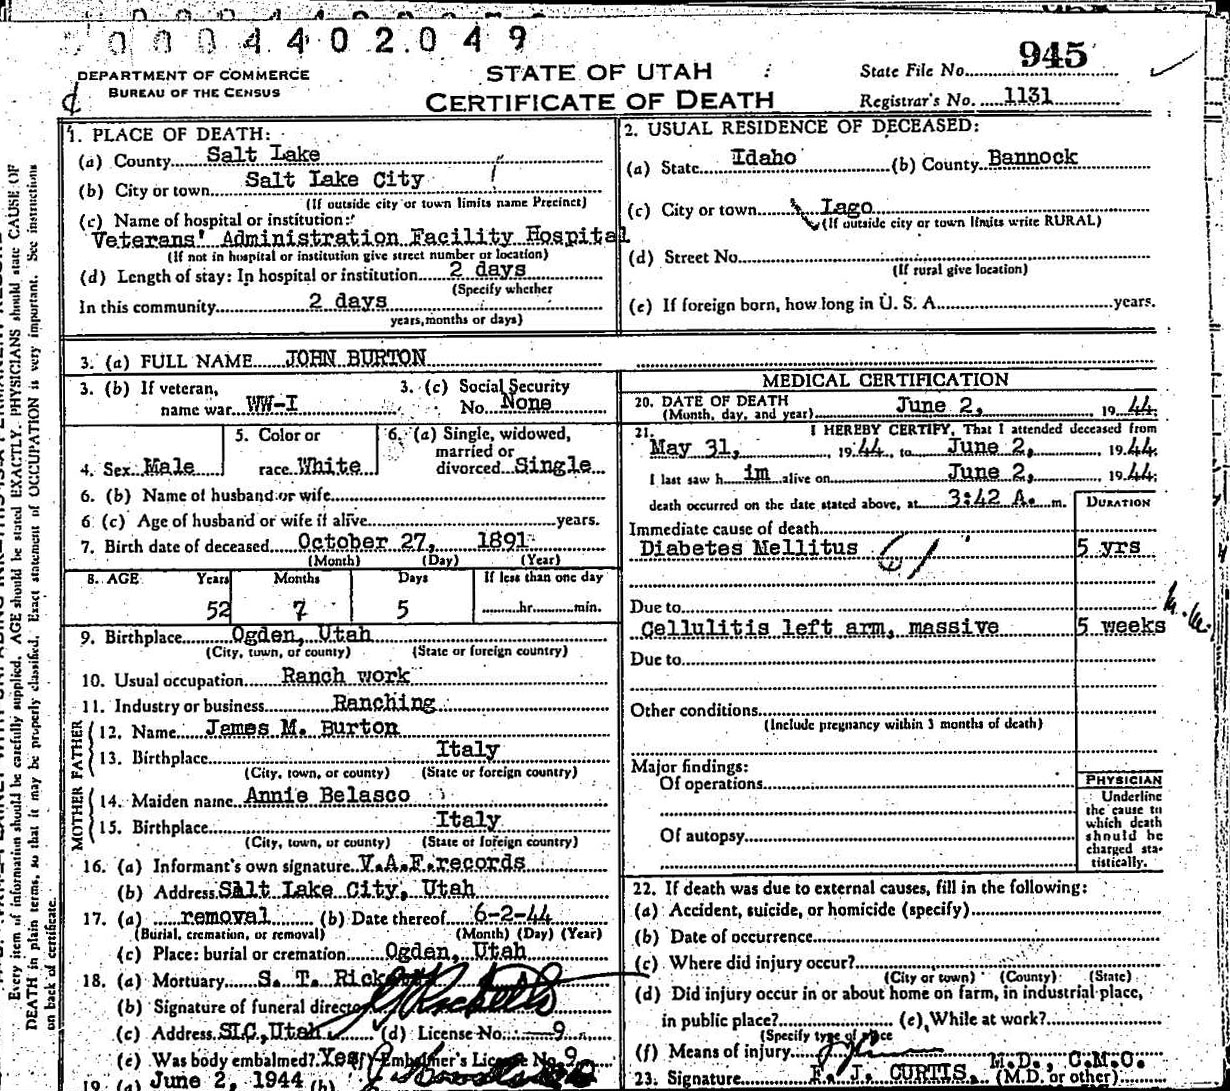 0 0 0 4 4 0 2 0 4 9
DEPARTMENT OF COMMERCE
BUREAU OF THE CENSUS
STATE OF UTAH
CERTIFICATE OF DEATH
State File No. 945
Registrar's No. 1131
1. PLACE OF DEATH:
(a) County Salt Lake
(b) City or town Salt Lake City
(If outside city or town limits name Precinct)
(c) Name of hospital or institution:
Veterans' Administration Facility Hospital
(If not in hospital or institution give street number or location)
(d) Length of stay: In hospital or institution 2 days
(Specify whether
In this community 2 days
years, months or days)
2. USUAL RESIDENCE OF DECEASED:
(a) State Idaho (b) County Bannock
(c) City or town Lago
(If outside city or town limits write RURAL)
(d) Street No.
(If rural give location)
(e) If foreign born, how long in U. S. A. years.
3. (a) FULL NAME JOHN BURTON
3. (b) If veteran,
name war WW-I
3. (c) Social Security
No. None
4. Sex Male
5. Color or
race White
6. (a) Single, widowed,
married or
divorced Single
6. (b) Name of husband or wife
6 (c) Age of husband or wife if alive years.
7. Birth date of deceased October 27, 1891
(Month) (Day) (Year)
8. AGE Years Months Days If less than one day
52 7 5 hr. min.
9. Birthplace Ogden, Utah
(City, town, or county) (State or foreign country)
10. Usual occupation Ranch work
11. Industry or business Ranching
FATHER
12. Name James M. Burton
13. Birthplace Italy
(City, town, or county) (State or foreign country)
MOTHER
14. Maiden name Annie Belasco
15. Birthplace Italy
(City, town, or county) (State or foreign country)
16. (a) Informant's own signature V.A.F. records
(b) Address Salt Lake City, Utah
17. (a) removal (b) Date thereof 6-2-44
(Burial, cremation, or removal) (Month) (Day) (Year)
(c) Place: burial or cremation Ogden, Utah
18. (a) Mortuary S. T. Rick
(b) Signature of funeral director
(c) Address SLC, Utah (d) License No. 9
(e) Was body embalmed? Yes (f) Embalmer's License No. 9
19. (a) June 2, 1944 (b)
MEDICAL CERTIFICATION
20. DATE OF DEATH
(Month, day, and year) June 2, 19 44
21. I HEREBY CERTIFY, That I attended deceased from
May 31, 19 44, to June 2, 19 44
I last saw h im alive on June 2, 19 44
death occurred on the date stated above, at 3:42 A. m.
DURATION
Immediate cause of death
Diabetes Mellitus 61 5 yrs
Due to
Cellulitis left arm, massive 5 weeks
Due to
Other conditions
(Include pregnancy within 3 months of death)
Major findings:
Of operations
Of autopsy
PHYSICIAN
Underline
the cause to
which death
should be
charged sta-
tistically.
22. If death was due to external causes, fill in the following:
(a) Accident, suicide, or homicide (specify)
(b) Date of occurrence
(c) Where did injury occur?
(City or town) (County) (State)
(d) Did injury occur in or about home on farm, in industrial place,
in public place? (e) While at work?
(Specify type of place
(f) Means of injury
M.D., C.M.O.
23. Signature F. J. CURTIS, (M.D. or other)
Every item of information should be carefully supplied. AGE should be stated EXACTLY. PHYSICIANS should state CAUSE OF
DEATH in plain terms, so that it may be properly classified. Exact statement of OCCUPATION is very important. See instructions
on back of certificate.